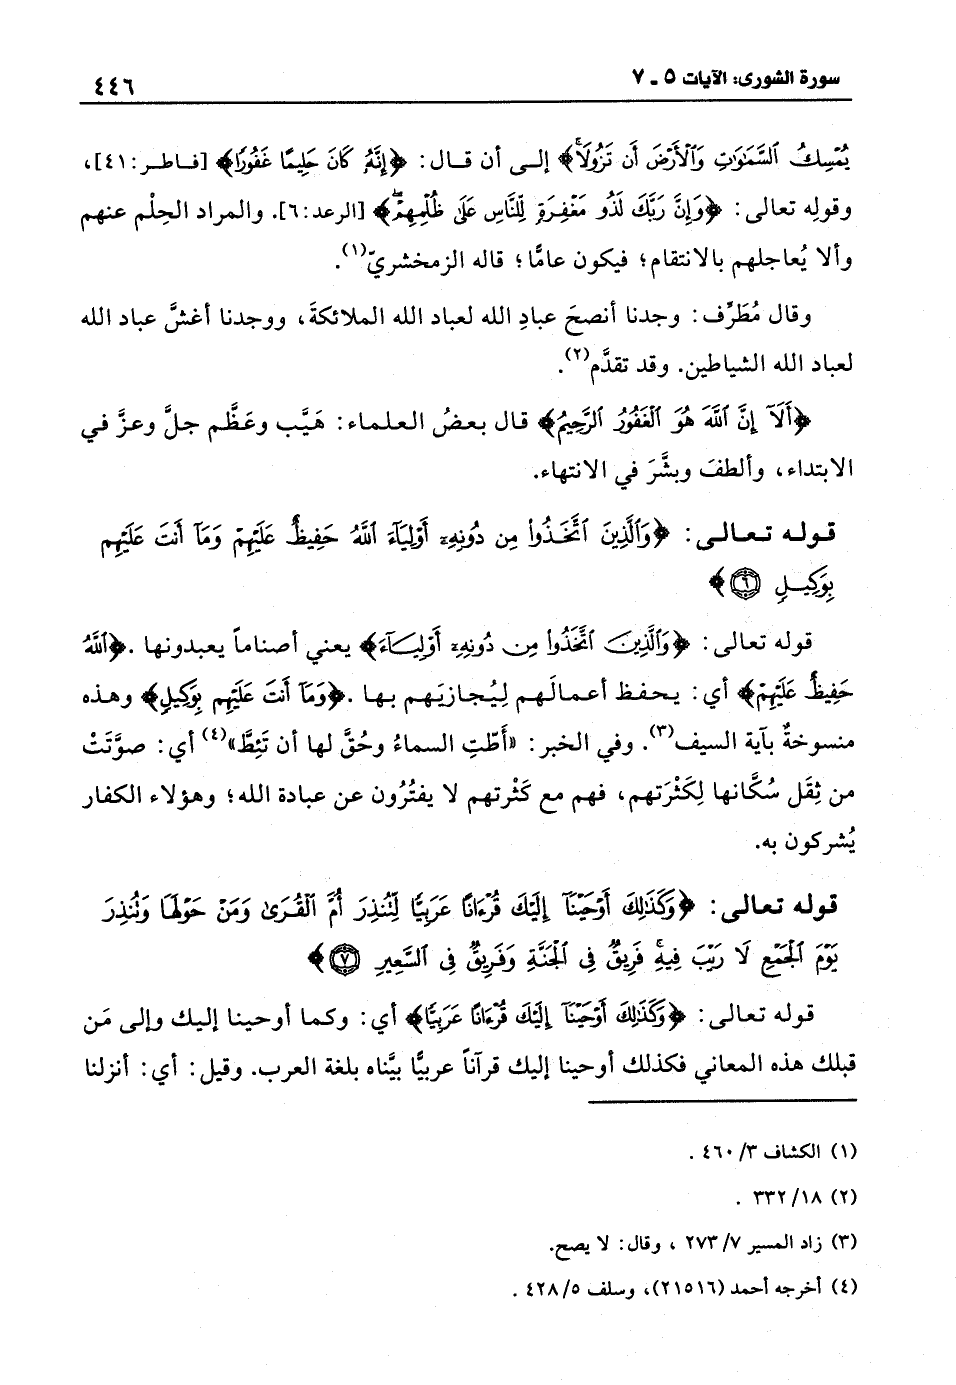 سورة الشورى: الآيات ٥ ـ ٧
٤٤٦
يُمْسِكُ ٱلسَّمَٰوَٰتِ وَٱلْأَرْضَ أَن تَزُولَاۚ﴾ إلى أن قال: ﴿إِنَّهُۥ كَانَ حَلِيمًا غَفُورًا﴾ [فاطر: ٤١]،
وقولِه تعالى: ﴿وَإِنَّ رَبَّكَ لَذُو مَغْفِرَةٍ لِّلنَّاسِ عَلَىٰ ظُلْمِهِمْۖ﴾ [الرعد: ٦]. والمراد الحِلْم عنهم
وألا يُعاجلهم بالانتقام؛ فيكون عامًّا؛ قاله الزمخشريّ(١).
وقال مُطَرِّف: وجدنا أنصحَ عبادِ الله لعباد الله الملائكةَ، ووجدنا أغشَّ عباد الله
لعباد الله الشياطين. وقد تقدَّم(٢).
﴿أَلَآ إِنَّ ٱللَّهَ هُوَ ٱلْغَفُورُ ٱلرَّحِيمُ﴾ قال بعضُ العلماء: هَيَّب وعَظَّم جلَّ وعزَّ في
الابتداء، وألطفَ وبشَّرَ في الانتهاء.
قوله تعالى: ﴿وَٱلَّذِينَ ٱتَّخَذُوا۟ مِن دُونِهِۦٓ أَوْلِيَآءَ ٱللَّهُ حَفِيظٌ عَلَيْهِمْ وَمَآ أَنتَ عَلَيْهِم
بِوَكِيلٍ ٦﴾
قوله تعالى: ﴿وَٱلَّذِينَ ٱتَّخَذُوا۟ مِن دُونِهِۦٓ أَوْلِيَآءَ﴾ يعني أصناماً يعبدونها. ﴿ٱللَّهُ
حَفِيظٌ عَلَيْهِمْ﴾ أي: يحفظ أعمالَهم لِيُجازيَهم بها. ﴿وَمَآ أَنتَ عَلَيْهِم بِوَكِيلٍ﴾ وهذه
منسوخةٌ بآية السيف(٣). وفي الخبر: «أَطَّتِ السماءُ وحُقَّ لها أن تَئِطَّ»(٤) أي: صوَّتَتْ
من ثِقَل سُكَّانها لِكَثْرَتهم، فهم مع كَثْرتهم لا يفتُرُون عن عبادة الله؛ وهؤلاء الكفار
يُشركون به.
قوله تعالى: ﴿وَكَذَٰلِكَ أَوْحَيْنَآ إِلَيْكَ قُرْءَانًا عَرَبِيًّا لِّتُنذِرَ أُمَّ ٱلْقُرَىٰ وَمَنْ حَوْلَهَا وَتُنذِرَ
يَوْمَ ٱلْجَمْعِ لَا رَيْبَ فِيهِۚ فَرِيقٌ فِى ٱلْجَنَّةِ وَفَرِيقٌ فِى ٱلسَّعِيرِ ٧﴾
قوله تعالى: ﴿وَكَذَٰلِكَ أَوْحَيْنَآ إِلَيْكَ قُرْءَانًا عَرَبِيًّا﴾ أي: وكما أوحينا إليك وإلى مَن
قبلك هذه المعاني فكذلك أوحينا إليك قرآناً عربيًّا بيَّناه بلغة العرب. وقيل: أي: أنزلنا
(١) الكشاف ٣/ ٤٦٠ .
(٢) ١٨/ ٣٣٢ .
(٣) زاد المسير ٧/ ٢٧٣ ، وقال: لا يصح.
(٤) أخرجه أحمد (٢١٥١٦)، وسلف ٥/ ٤٢٨ .